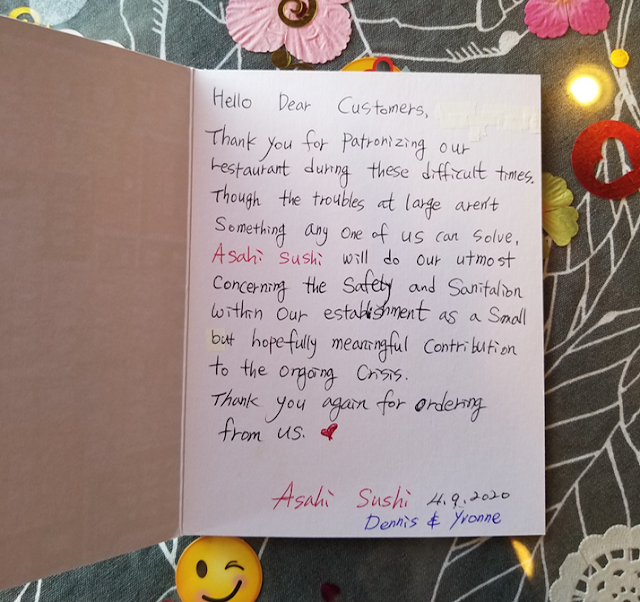 Hello Dear Customers,
Thank you for patronizing our
restaurant during these difficult times.
Though the troubles at large aren't
Something any one of us can solve,
Asahi Sushi will do our utmost
Concerning the Safety and Sanitation
within our establishment as a small
but hopefully meaningful contribution
to the ongoing Crisis.
Thank you again for ordering
from us. ❤
Asahi Sushi 4.9.2020
Dennis & Yvonne